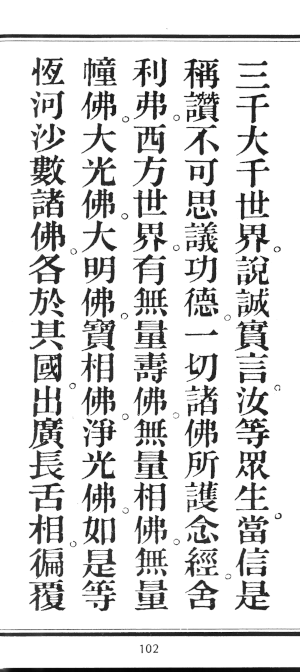 三千大千世界。說誠實言。汝等眾生。當信是
稱讚不可思議功德。一切諸佛所護念經。舍
利弗。西方世界。有無量壽佛。無量相佛。無量
幢佛。大光佛。大明佛。寶相佛。淨光佛。如是等
恆河沙數諸佛。各於其國。出廣長舌相。徧覆
102